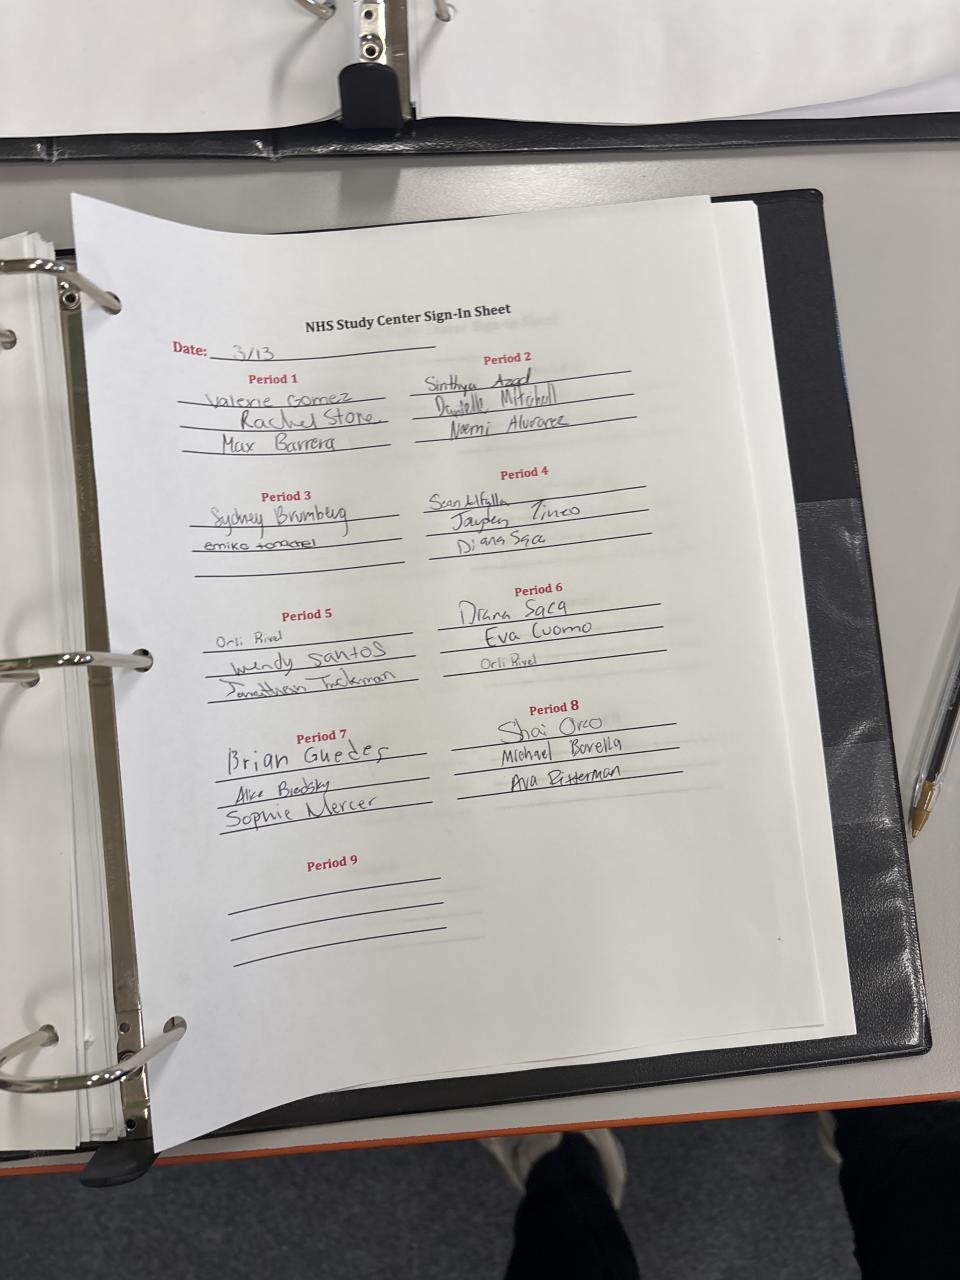 NHS Study Center Sign-In Sheet
Date: 3/13
Period 1
Valerie Gomez
Rachel Stone
Max Barrera
Period 2
Sinthya Azad
Danielle Mitchell
Noemi Alvarez
Period 3
Sydney Brumberg
emiko
Period 4
Sean
Jayden Tineo
Diana Saca
Period 5
Orli Rivel
Wendy Santos
Jonathan Tuckman
Period 6
Diana Saca
Eva Cuomo
Orli Rivel
Period 7
Brian Guedes
Alice Brodsky
Sophie Mercer
Period 8
Shai Orco
Michael Borella
Ava Ritterman
Period 9